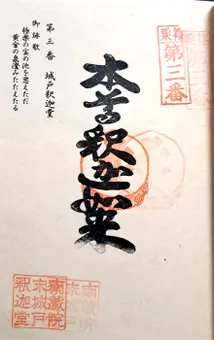 第三番 城戸釈迦堂
御詠歌
極楽の宝の池を思えただ
黄金の泉澄みたたえたる
本尊釈迦如来
篠栗
第三番
南蔵院
末城戸
釈迦堂